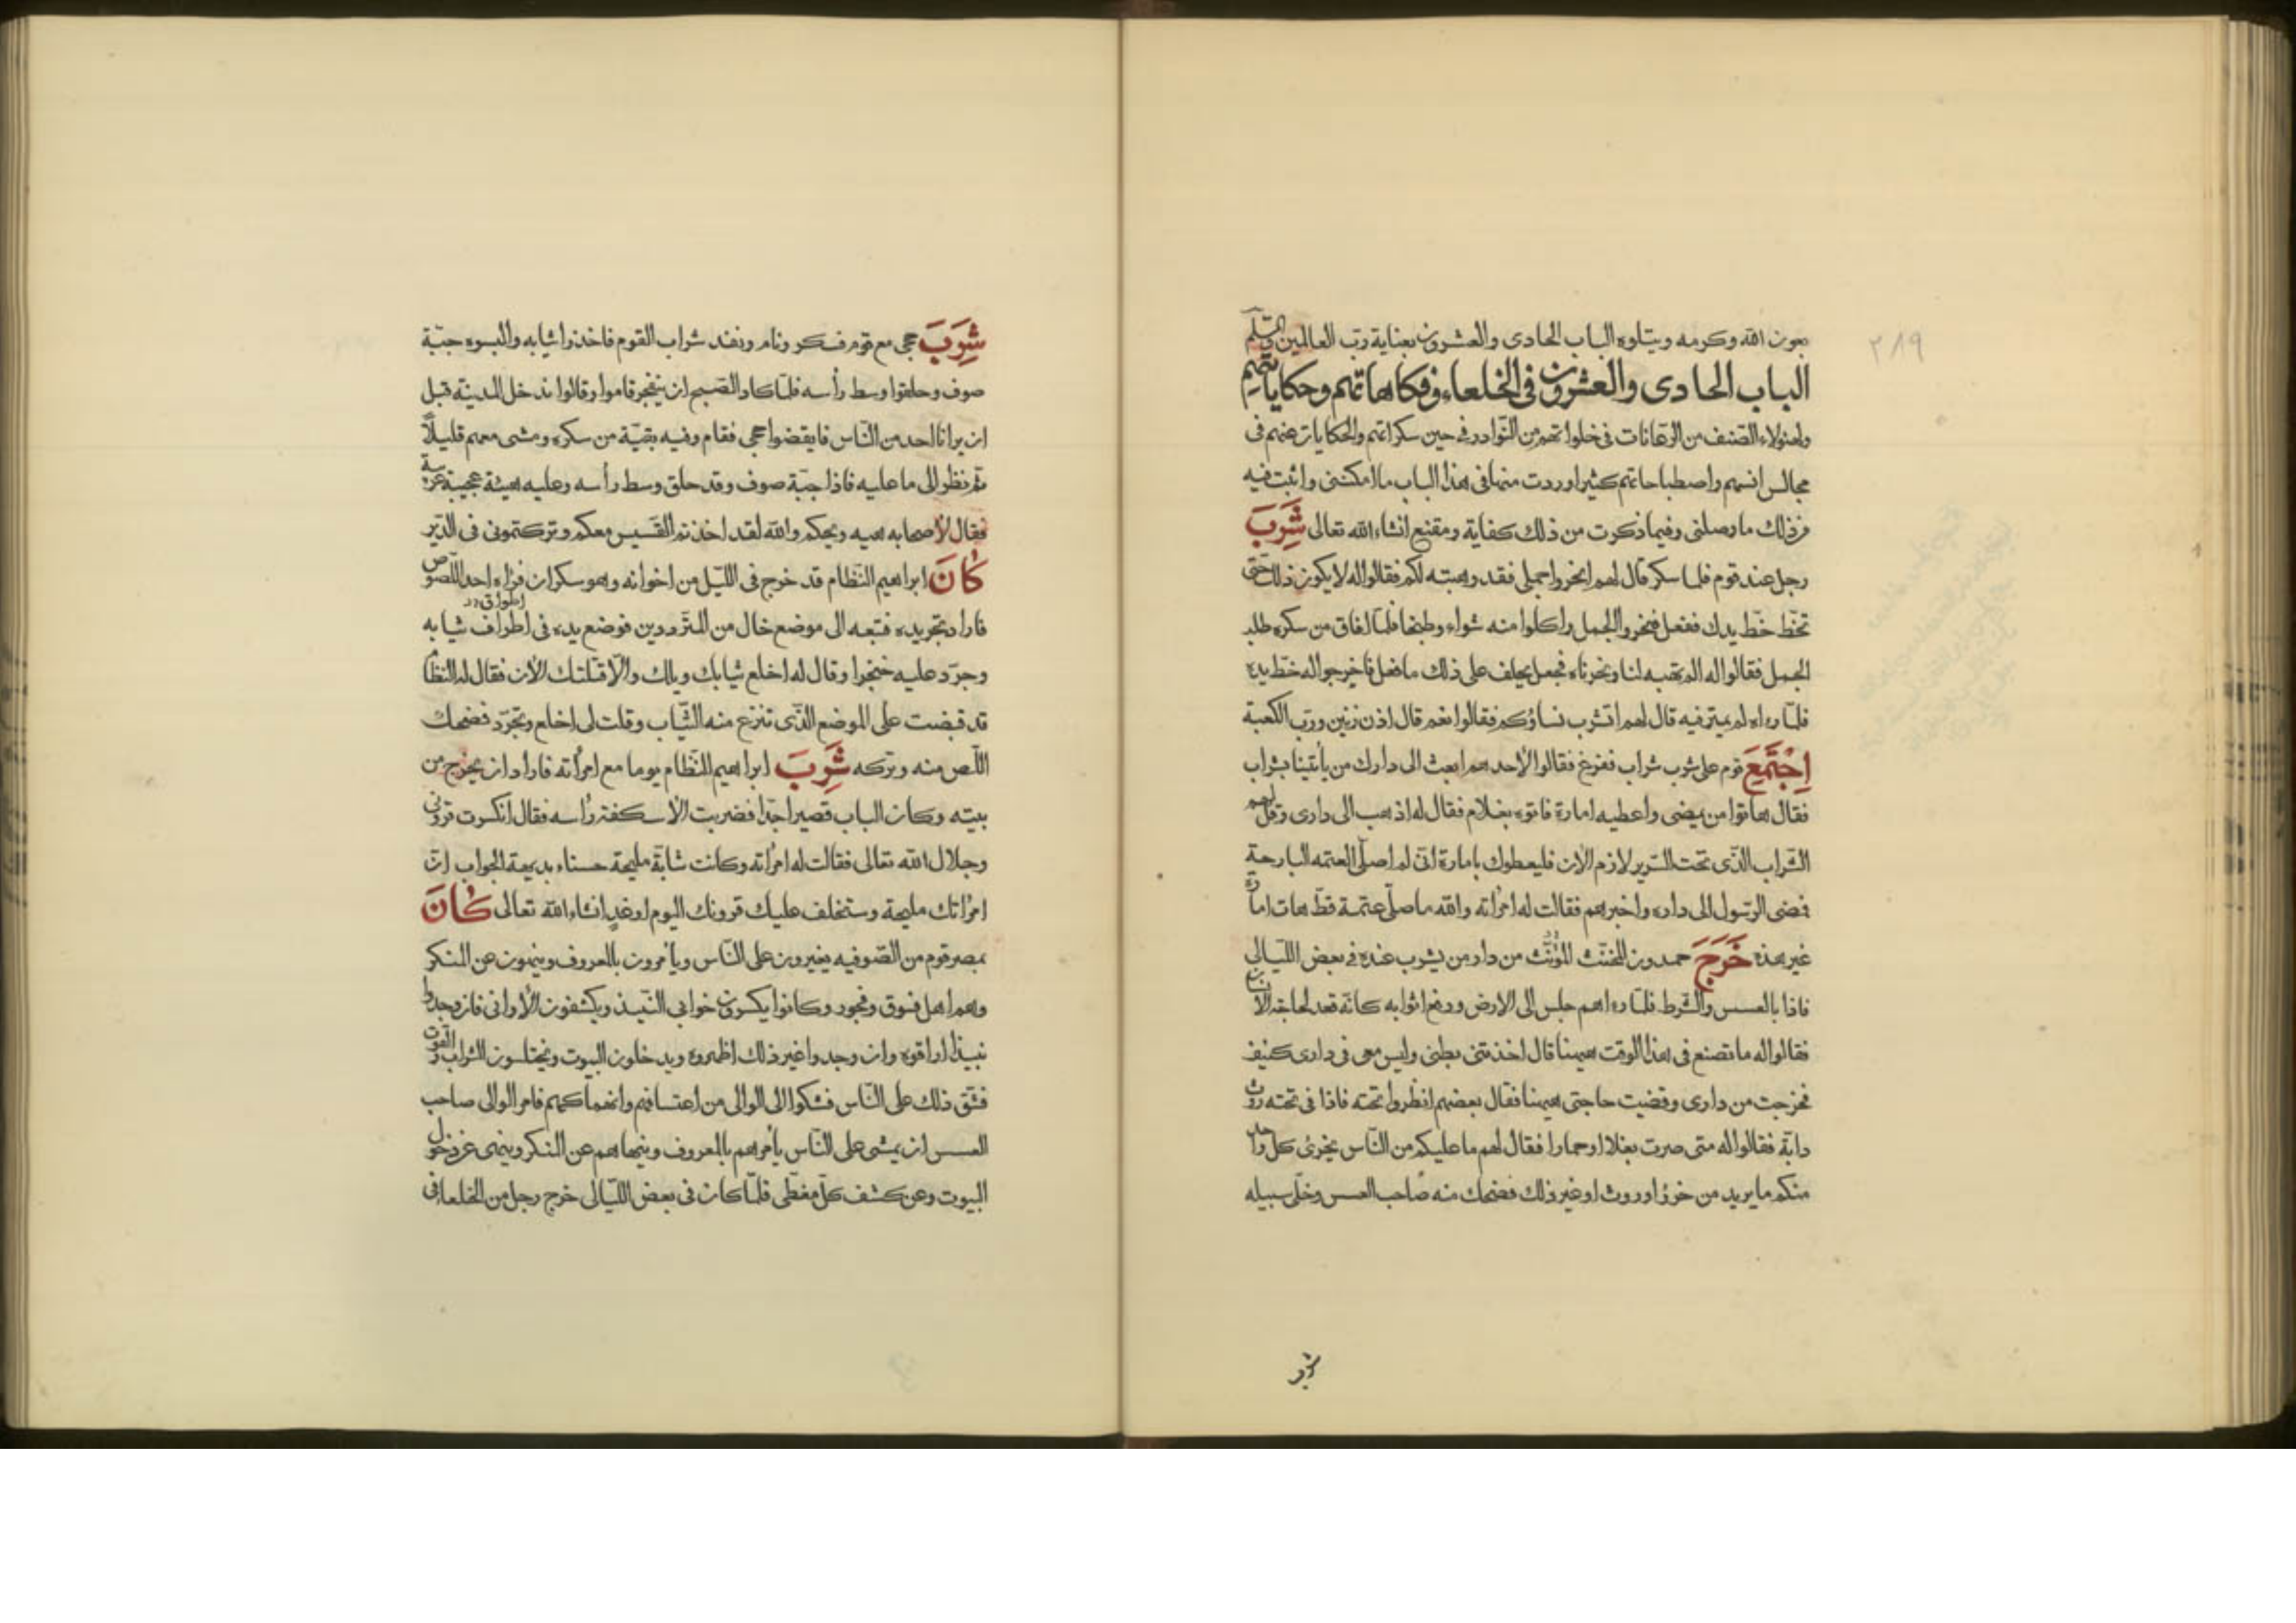 ٢٨٩
بعون الله وكرمه ويتلوه الباب الحادى والعشرون بعناية رب العالمين
الباب الحادى والعشرون فى الخلعاء وفكاهاتهم وحكاياتهم
ولهؤلاء الصنف من الرهانات فى خلواتهم من النوادر وفى حين سكراتهم والحكايات عنهم فى
مجالس انسهم واصطباحاتهم كثيرا وردت منها فى هذا الباب ما امكننى واثبت فيه
من ذلك ما وصلنى وفيما ذكرت من ذلك كفاية ومقنع انشاء الله تعالى شَرِبَ
رجل عند قوم فلما سكر قال لهم انحروا جملى فقد وهبته لكم فقالوا له لا يكون ذلك حتى
تخط خط يدك ففعل فنحروا الجمل واكلوا منه شواء وطبخا فلما افاق من سكره طلب
الجمل فقالوا له الم تهبه لنا ونحرناه فجعل يحلف على ذلك ما فعل فاخرجوا له خط يده
فلما رءاه لم يمترفيه قال لهم اتشرب نساؤكم فقالوا نعم قال اذن زنين ورب الكعبة
اِجْتَمَعَ قوم على شرب شراب ففرغ فقالوا لأحدهم ابعث الى دارك من يأتينا بشراب
فقال هاتوا من يمضى واعطيه امارة فاتوه بغلام فقال له اذهب الى دارى وقل لهم
الشراب الذى تحت السرير لازم الان فليعطوك بامارة انى لم اصل العتمه البارحة
فمضى الرسول الى داره واخبرهم فقالت له امرأته والله ما صلى عتمة قط هات امارة
غير هذه خَرَجَ حمدون المخنث المؤنث من دار من يشرب عنده فى بعض الليالى
فاذا بالعسس والشرط فلما رءاهم جلس الى الارض ورفع اثوابه كانه قعد لحاجة الانسان
فقالوا له ما تصنع فى هذا الوقت ههنا قال اخذتنى بطنى وليس معى فى دارى كنيف
فخرجت من دارى وقضيت حاجتى ههنا فقال بعضهم انظروا تحته فاذا فى تحته روث
دابة فقالوا له متى صرت بغلا او حمارا فقال لهم ما عليكم من الناس يخرى كل واحد
منكم ما يريد من خرؤ او روث او غير ذلك فضحك منه صاحب العسس وخلى سبيله
شرب
شَرِبَ جحى مع قوم فسكر ونام ونفد شراب القوم فاخذوا ثيابه والبسوه جبة
صوف وحلقوا وسط رأسه فلما كاد الصبح ان ينفجر قاموا وقالوا ندخل المدينة قبل
ان يرانا احد من الناس فايقضوا جحى فقام وفيه بقية من سكره ومشى معهم قليلا
ثم نظر الى ما عليه فاذا جبة صوف وقد حلق وسط رأسه وعليه هيئة عجيبة غريبة
فقال لأصحابه هيه ويحكم والله لقد اخذتم القسيس معكم وتركتمونى فى الدير
كَانَ ابراهيم النظام قد خرج فى الليل من اخوانه وهو سكران فرءاه احد اللصوص
فاراد تجريده فتبعه الى موضع خال من المترددين فوضع يده فى اطراف ثيابه
اطواق
وجرد عليه خنجرا وقال له اخلع ثيابك ويلك والا قتلتك الان فقال له النظام
قد قبضت على الموضع الذى تنزع منه الثياب وقلت لى اخلع وتجرد فضحك
اللص منه وتركه شَرِبَ ابراهيم النظام يوما مع امرأته فاراد ان يخرج من
بيته وكان الباب قصيرا جدا فضربت الأسكفة رأسه فقال انكسرت قرونى
وجلال الله تعالى فقالت له امرأته وكانت شابة مليحة حسناء بديهة الجواب ان
امرأتك مليحة وستخلف عليك قرونك اليوم او غد انشاء الله تعالى كَانَ
بمصر قوم من الصوفيه يغيرون على الناس ويأمرون بالمعروف وينهون عن المنكر
وهم اهل فسوق وفجور وكانوا يكسرون خوابى النبيذ ويكشفون الأوانى فان وجدوا
نبيذا اراقوه وان وجدوا غير ذلك اظهروه ويدخلون البيوت ويختلسون الشراب والقوت
فشق ذلك على الناس فشكوا الى الوالى من اعتسافهم وانهماكهم فامر الوالى صاحب
العسس ان يمشى على الناس يأمرهم بالمعروف وينهاهم عن المنكر وينهى عن دخول
البيوت وعن كشف كل مغطى فلما كان فى بعض الليالى خرج رجل من الخلعاء فى